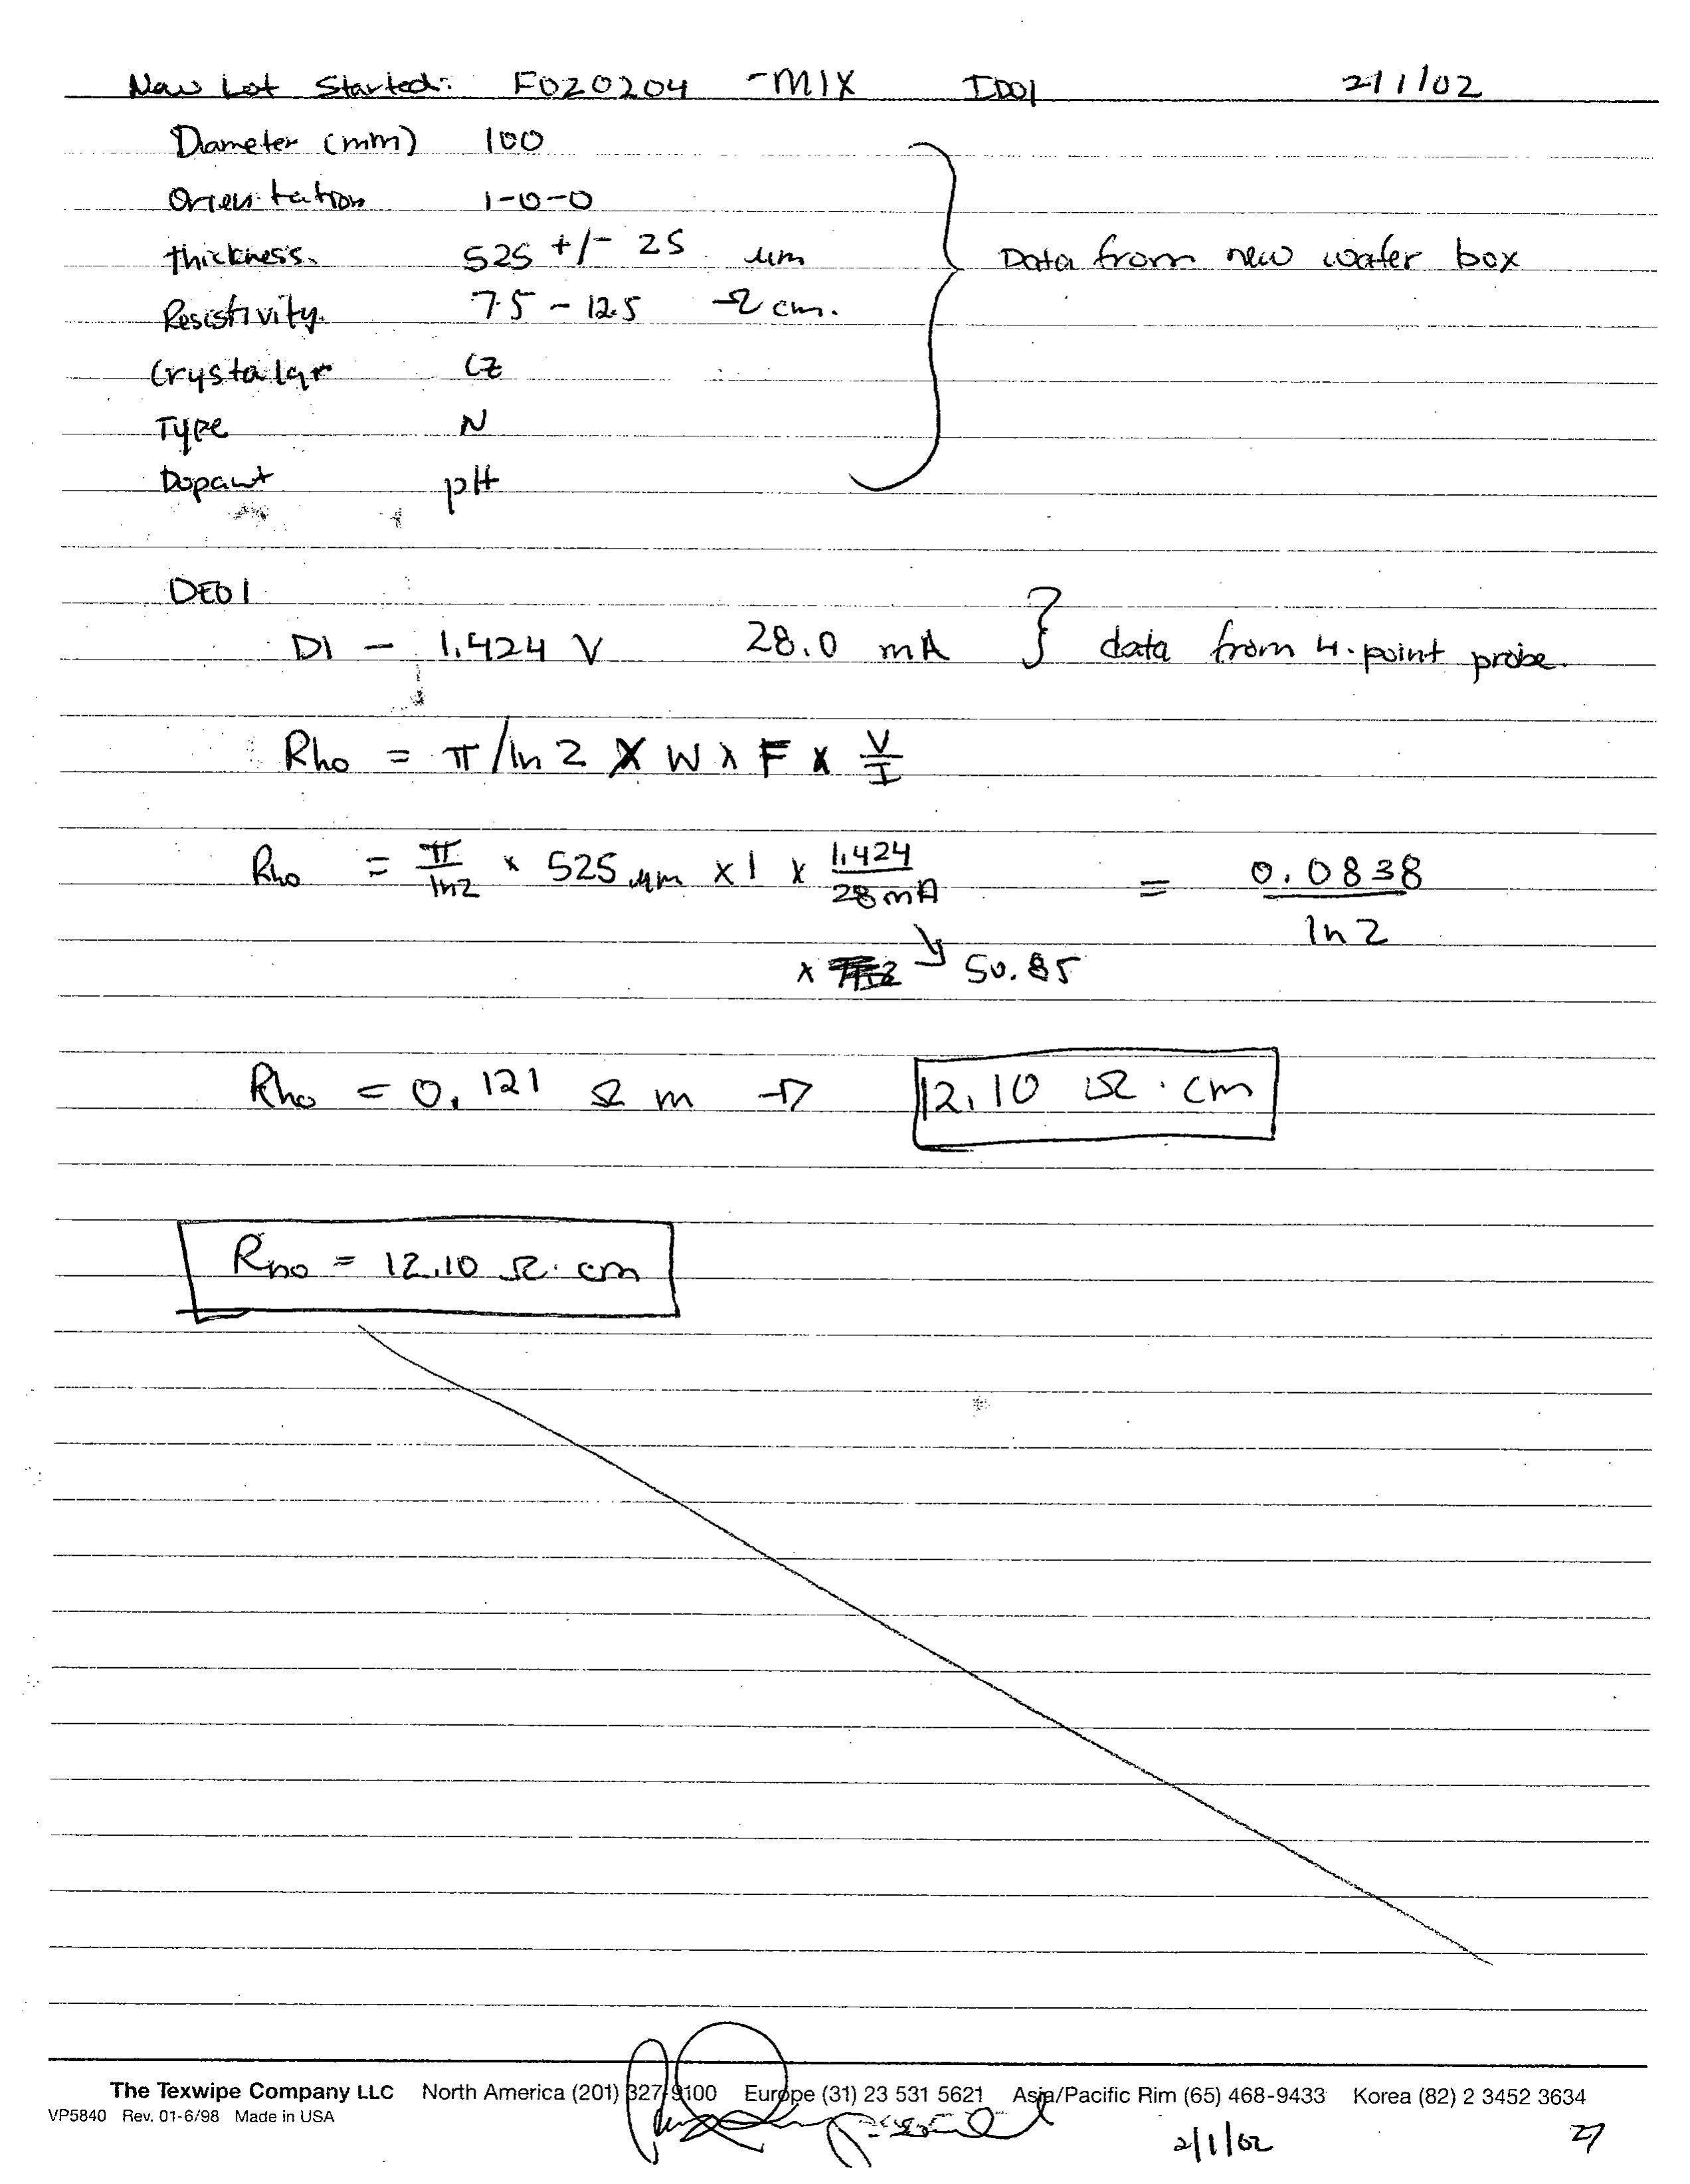 New Lot Started: F020204 -MIX ID01 2/1/02
Diameter (mm) 100
Orientation 1-0-0
thickness. 525 +/- 25 µm Data from new wafer box
Resistivity. 7.5 - 12.5 Ω cm.
CZ
Type N
Dopant pH
DE01
D1 - 1.424 V 28.0 mA } data from 4-point probe.
Rho = π/ln 2 X W x F x V/I
Rho = π/ln2 x 525 µm x 1 x 1.424/28 mA = 0.0838/ln 2
x 50.85
Rho = 0.121 Ω m → 12.10 Ω · cm
Rho = 12.10 Ω · cm
The Texwipe Company LLC North America (201) 327-9100 Europe (31) 23 531 5621 Asia/Pacific Rim (65) 468-9433 Korea (82) 2 3452 3634
VP5840 Rev. 01-6/98 Made in USA
2/1/02
27